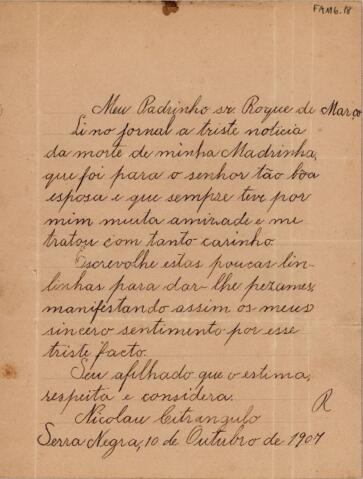 FAM6.18
Meu Padrinho sr. Roque de Março
Li no jornal a triste noticia
da morte de minha Madrinha,
que foi para o senhor tão boa
esposa e que sempre teve por
mim muita amizade e me
tratou com tanto carinho.
Escrevolhe estas poucas lin-
linhas para dar-lhe pezames,
manifestando assim os meus
sincero sentimento por esse
triste facto.
Seu afilhado que o estima,
respeita e considera.
R
Nicolau Citrangulo
Serra Negra, 10 de Outubro de 1907